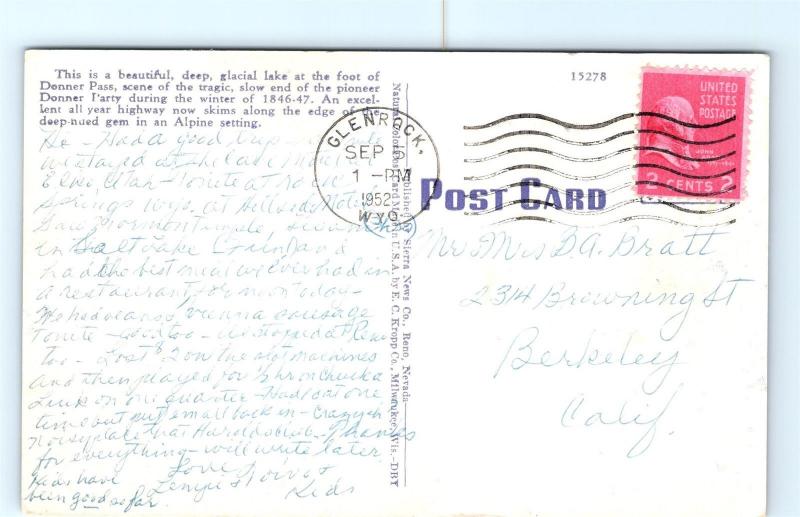 This is a beautiful, deep, glacial lake at the foot of
Donner Pass, scene of the tragic, slow end of the pioneer
Donner Party during the winter of 1846-47. An excel-
lent all year highway now skims along the edge of the
deep-nued gem in an Alpine setting.
15278
UNITED
STATES
POSTAGE
JOHN
2 CENTS 2
GLENROCK,
SEP 5
1 - PM
1952
WYO.
POST CARD
Had a good trip
we stayed at the
Elko, Utah - Tonite at Rock
Springs Wyo. at Motel
Saw Mormon temple, swam
in Salt Lake and
had the best meal we ever had in
a restaurant for noon today -
We had vienna sausage
tonite - good too - We stopped at Reno
too - Lost $2 on the slot machines
and then played for 3 hr on
Link on one quarter - Had eat one
time out put em all back in - Crazy &
noisy place that Harolds club. Thanks
for everything - will write later
kids have Love
been good so far. Kids
Mr Mrs D.A. Bratt
2314 Browning St
Berkeley
Calif.
Published by Sierra News Co., Reno, Nevada.
Natural Color Post Card Made in U.S.A. by E. C. Kropp Co., Milwaukee, Wis.-DBT